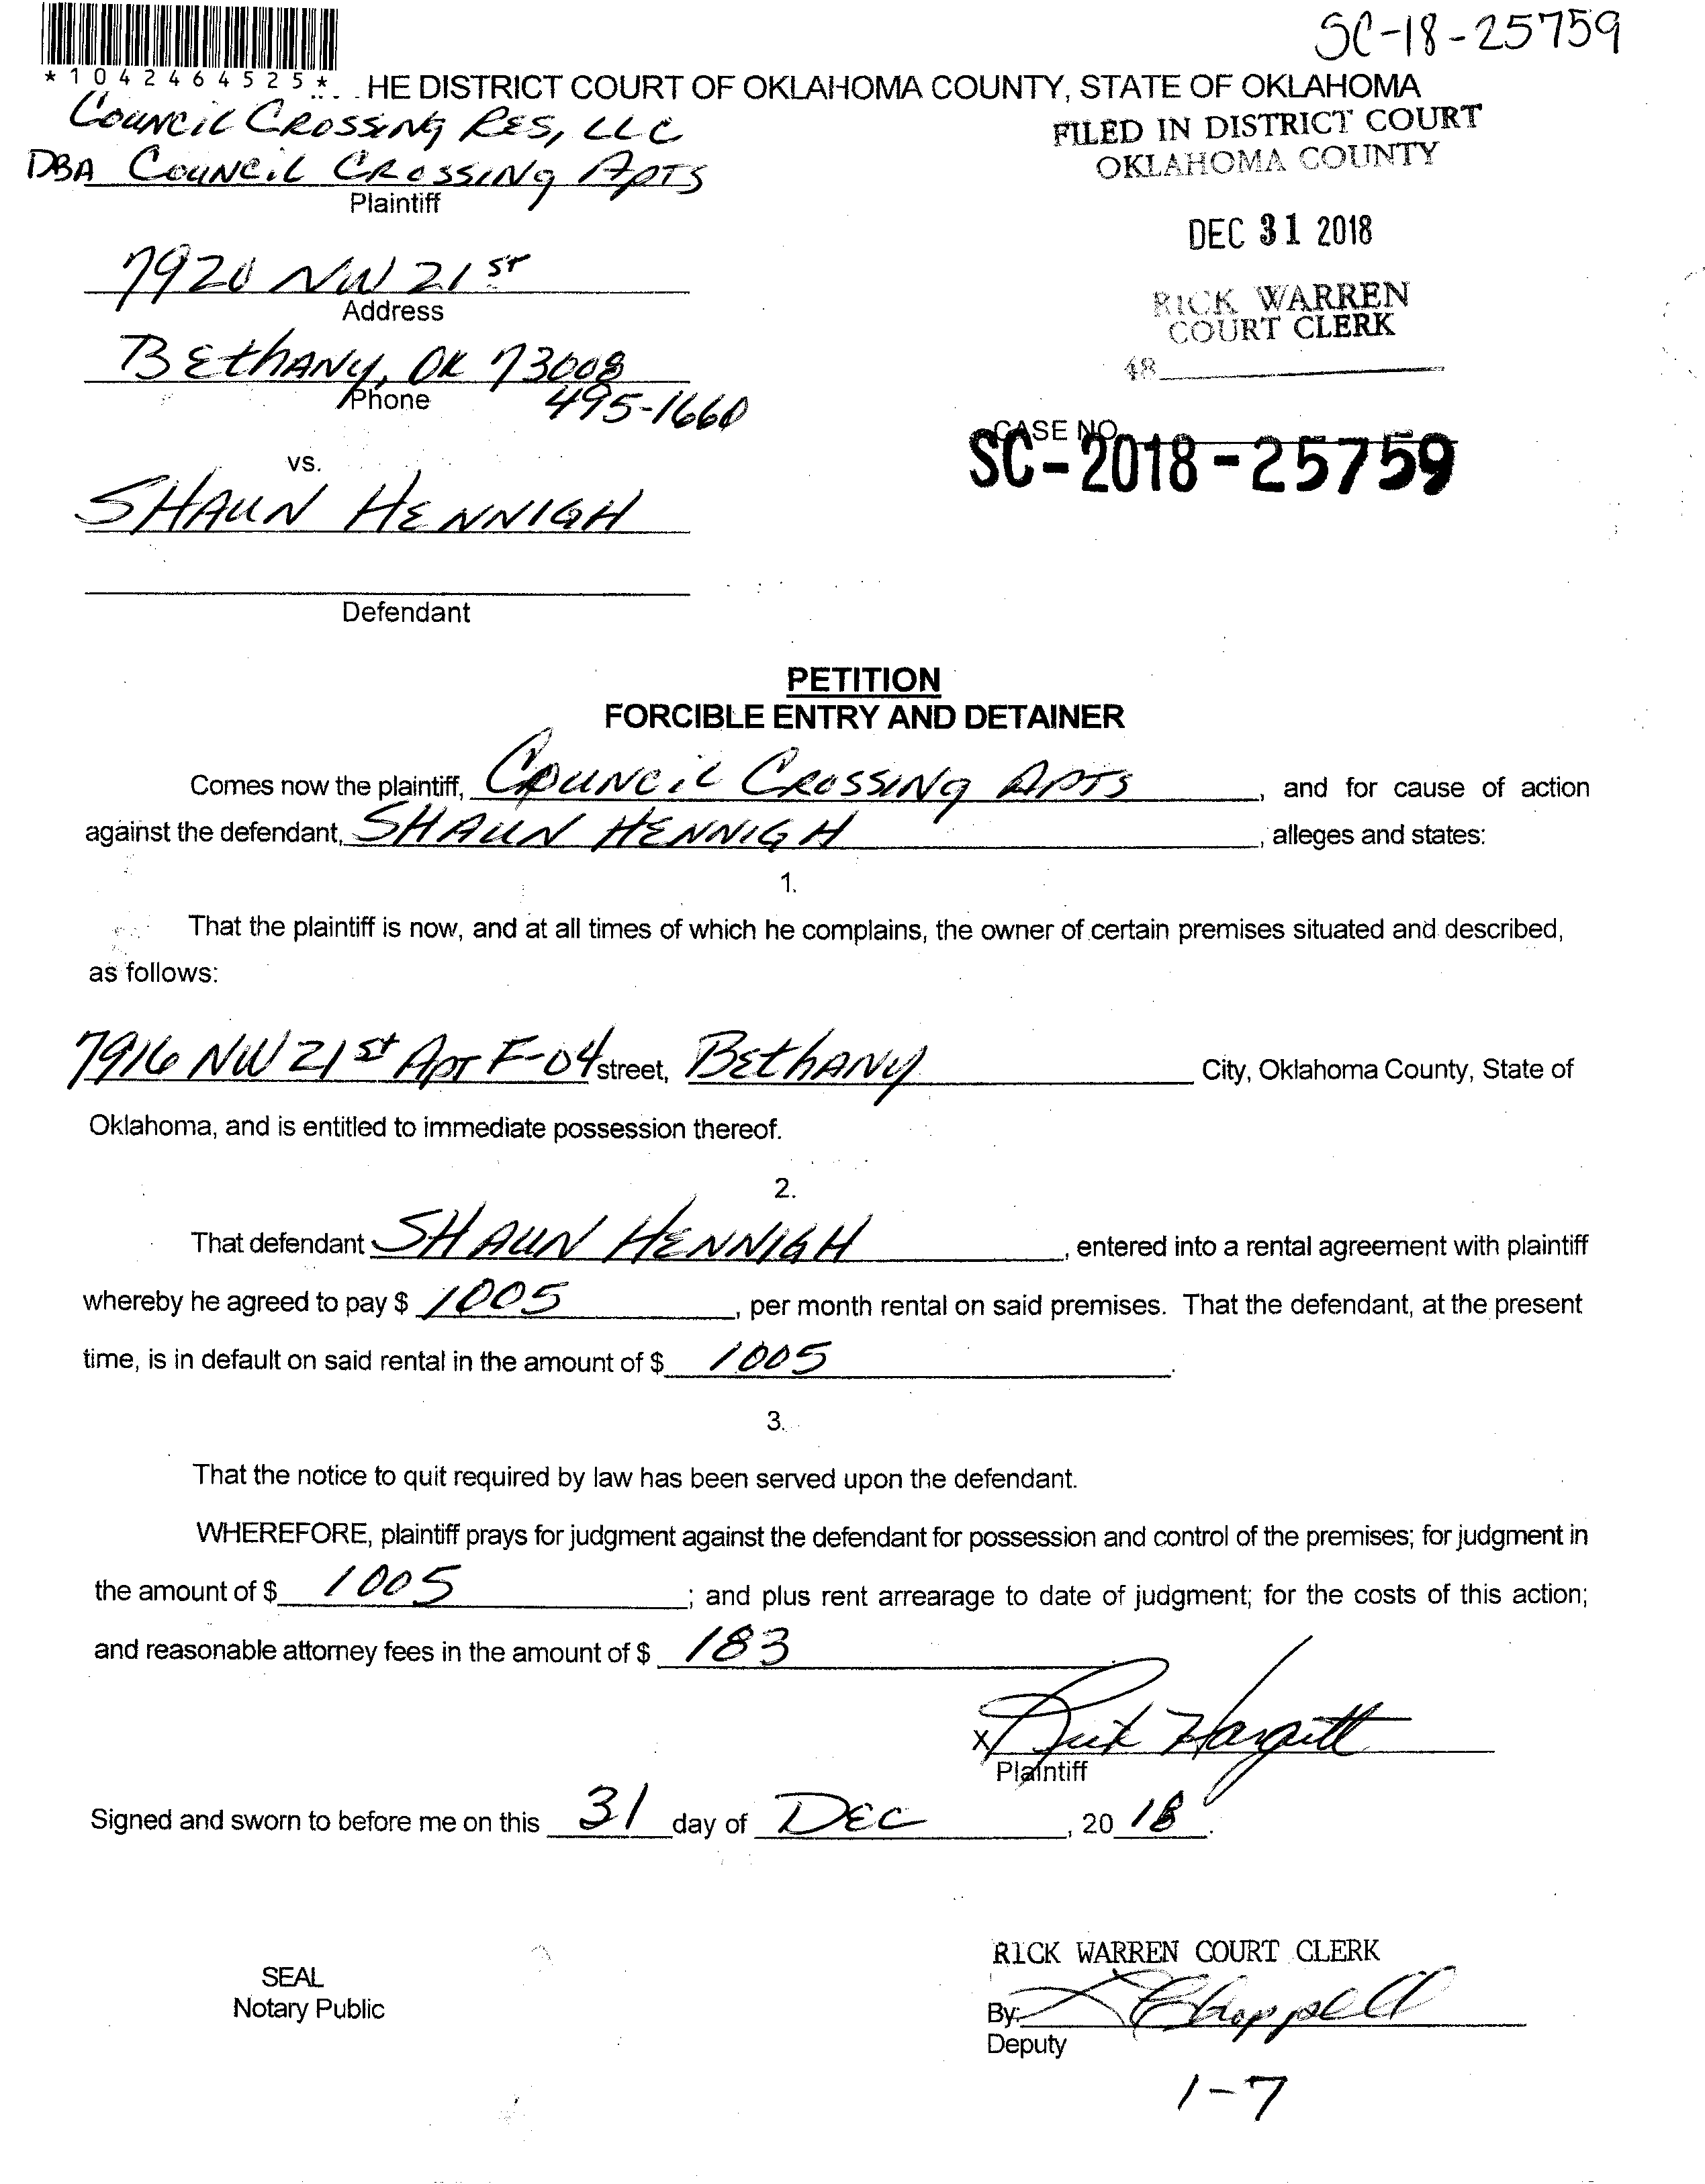 SC-18-25759
*1042464525*
HE DISTRICT COURT OF OKLAHOMA COUNTY, STATE OF OKLAHOMA
COUNCIL CROSSING RES, LLC
DBA COUNCIL CROSSING APTS
Plaintiff
FILED IN DISTRICT COURT
OKLAHOMA COUNTY
DEC 31 2018
7920 NW 21 ST
Address
RICK WARREN
COURT CLERK
BEthANY, OK 73008
48
Phone
495-1660
CASE NO.
SC-2018-25759
vs.
SHAUN HENNIGH
Defendant
PETITION
FORCIBLE ENTRY AND DETAINER
Comes now the plaintiff, COUNCIL CROSSING APTS, and for cause of action
against the defendant, SHAUN HENNIGH, alleges and states:
1.
That the plaintiff is now, and at all times of which he complains, the owner of certain premises situated and described,
as follows:
7916 NW 21 st APT F-04 street, BEthANY City, Oklahoma County, State of
Oklahoma, and is entitled to immediate possession thereof.
2.
That defendant SHAUN HENNIGH, entered into a rental agreement with plaintiff
whereby he agreed to pay $ 1005, per month rental on said premises. That the defendant, at the present
time, is in default on said rental in the amount of $ 1005.
3.
That the notice to quit required by law has been served upon the defendant.
WHEREFORE, plaintiff prays for judgment against the defendant for possession and control of the premises; for judgment in
the amount of $ 1005; and plus rent arrearage to date of judgment; for the costs of this action;
and reasonable attorney fees in the amount of $ 183
X Rick Hargett
Plaintiff
Signed and sworn to before me on this 31 day of DEC, 20 18.
RICK WARREN COURT CLERK
SEAL
Notary Public
By: Chappell
Deputy
1-7